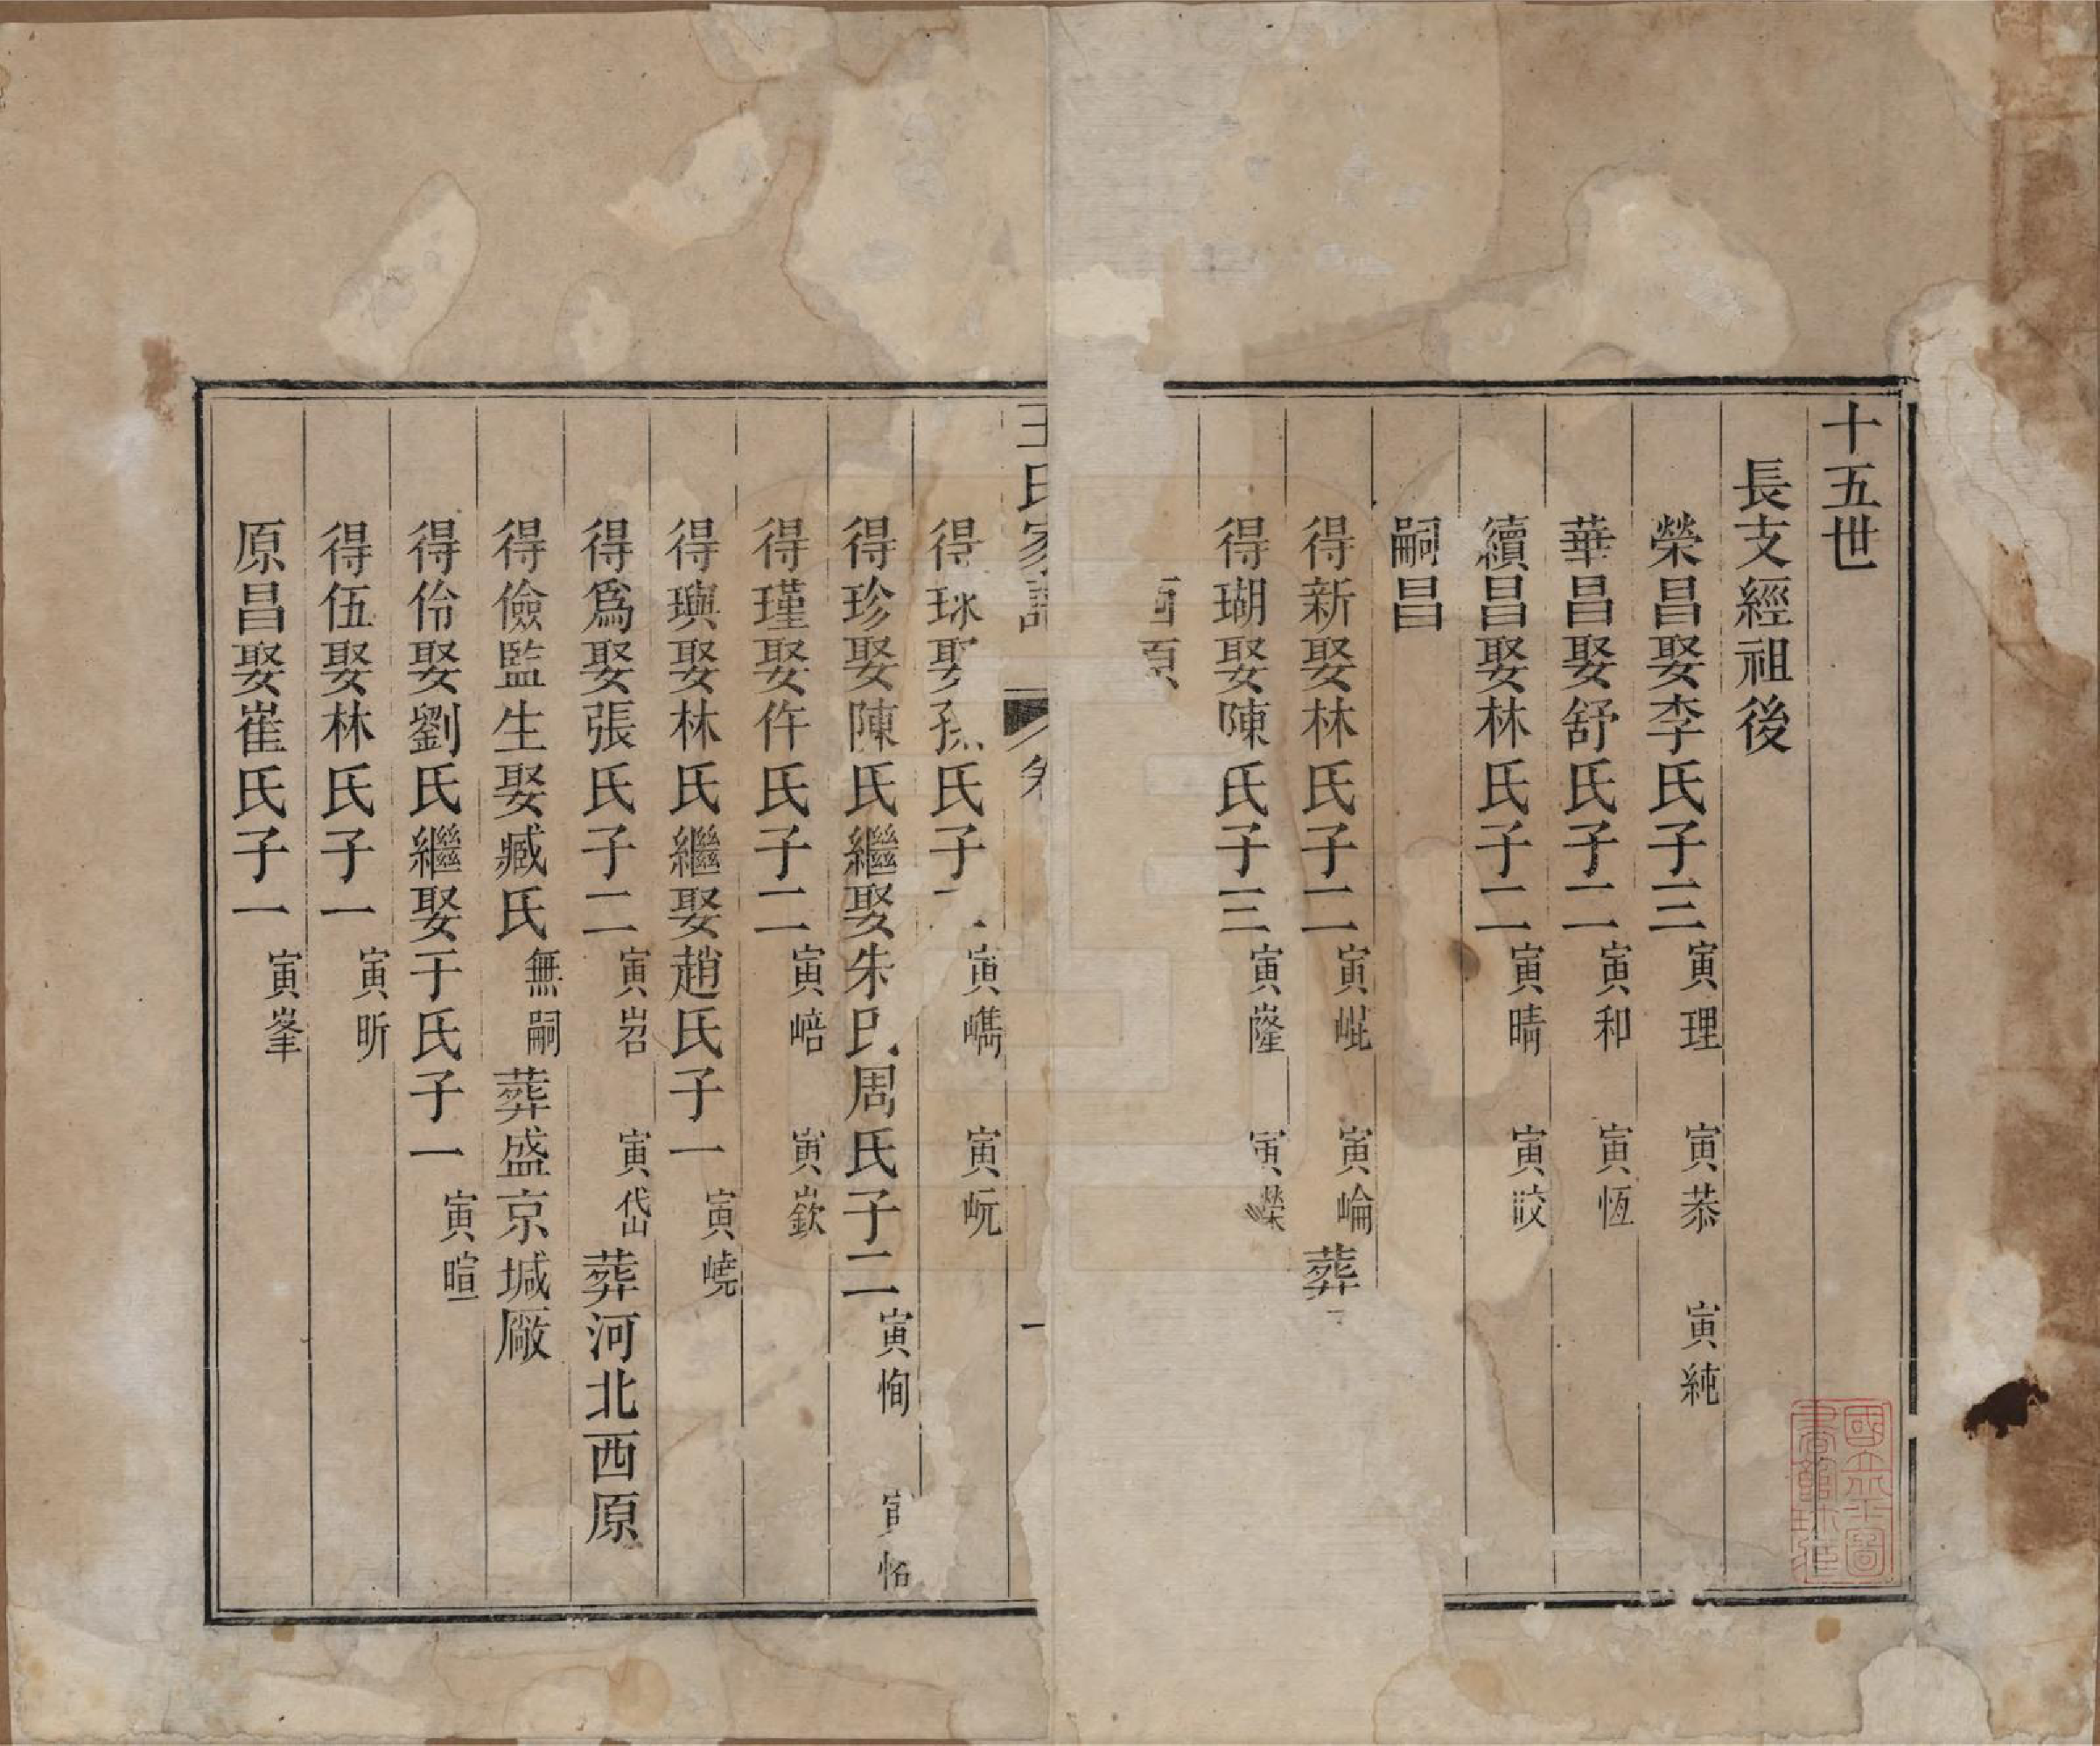 十五世
長支經祖後
榮昌娶李氏子三 寅理 寅恭 寅純
華昌娶舒氏子二 寅和 寅恆
續昌娶林氏子二 寅晴 寅
嗣昌
得新娶林氏子二 寅崐 寅崘 葬
得瑚娶陳氏子三 寅嶐 寅
西原
王氏家譜 卷 一
得珠娶孫氏子二 寅嶲 寅岏
得珍娶陳氏繼娶朱氏周氏子二 寅恂 寅恪
得瑾娶仵氏子二 寅㟝 寅嶔
得璵娶林氏繼娶趙氏子一 寅嶢
得爲娶張氏子二 寅岧 寅岱 葬河北西原
得儉監生娶臧氏 無嗣 葬盛京城廠
得伶娶劉氏繼娶于氏子一 寅暄
得伍娶林氏子一 寅昕
原昌娶崔氏子一 寅峯
國立北平圖書館珍藏